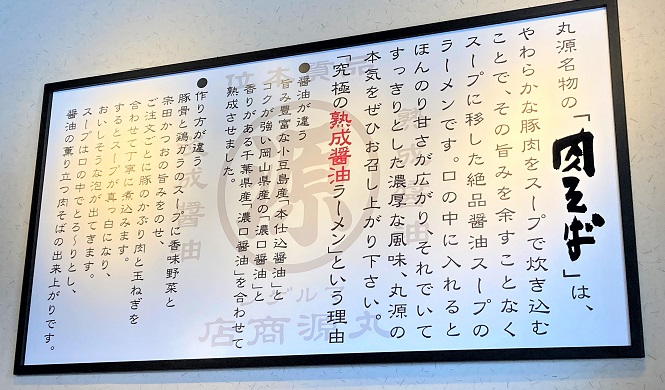 丸源名物の「肉そば」は、
やわらかな豚肉をスープで炊き込む
ことで、その旨みを余すことなく
スープに移した絶品醤油スープの
ラーメンです。口の中に入れると
ほんのり甘さが広がり、それでいて
すっきりとした濃厚な風味、丸源の
本気をぜひお召し上がり下さい。
「究極の熟成醤油ラーメン」という理由
●醤油が違う
旨み豊富な小豆島産「本仕込醤油」と
コクが強い岡山県産の「濃口醤油」と
香りがある千葉県産「濃口醤油」を合わせて
熟成させました。
●作り方が違う
豚骨と鶏ガラのスープに香味野菜と
宗田かつおの旨みをのせ、
ご注文ごとに豚のかぶり肉と玉ねぎを
合わせて丁寧に煮込みます。
するとスープが真っ白になり、
おいしそうな泡が出てきます。
スープは口の中でとろ〜りとし、
醤油の薫り立つ肉そばの出来上がりです。
熟成醤油
源
成醤油
丸源商店